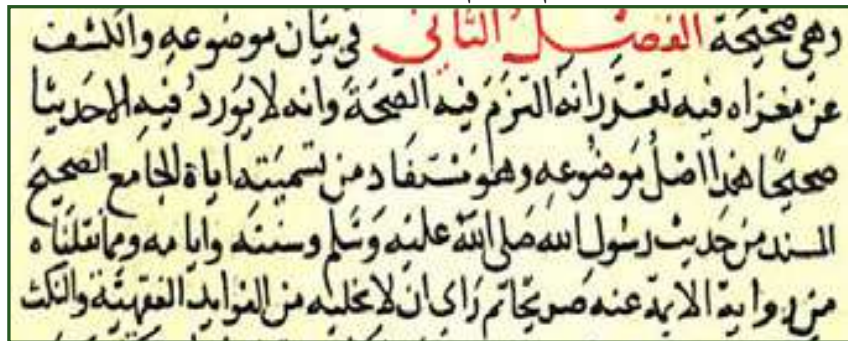 وهي صحيحة الفصل الثاني في بيان موضوعه والكشف
عن مغزاه فيه تقرر انه التزم فيه الصحة وانه لا يورد فيه الا حديثا
صحيحا هذا اصل موضوعه وهو مستفاد من تسميته اياه الجامع الصحيح
المسند من حديث رسول الله صلى الله عليه وسلم وسننه وايامه ومما نقلناه
من رواية الايمة عنه صريحا ثم راى ان لا يخليه من الفوايد الفقهية والنكت